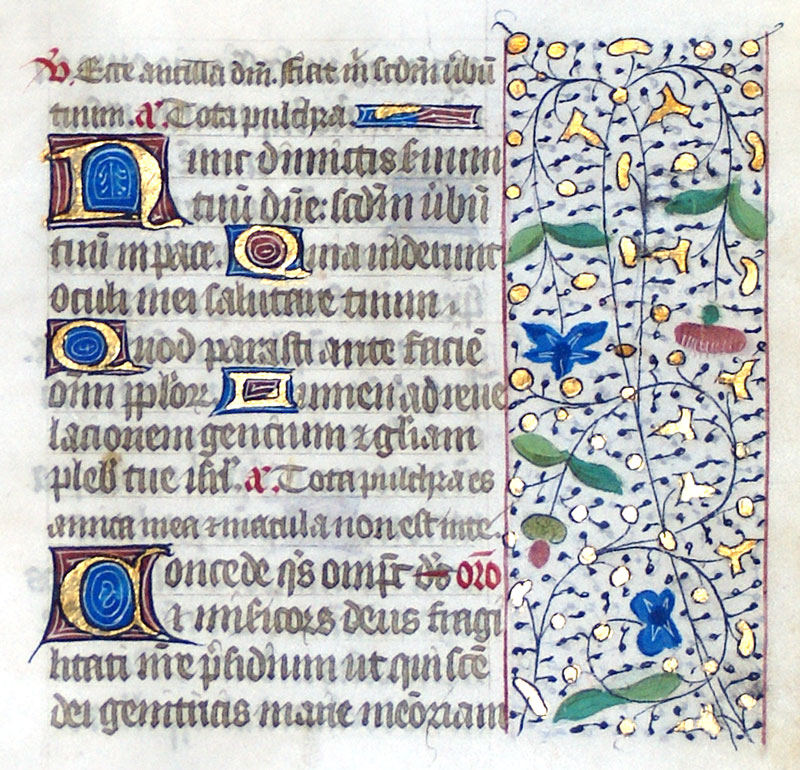 V. Ecce ancilla dnī. fiat m̄ scdm̄ ūbū
tuum. a. Tota pulchra.
Nunc dimictis seruum
tuū dn̄e: scdm̄ ūbū
tuū in pace. Quia uiderunt
oculi mei salutare tuum
Quod parasti ante faciē
oīm pplorꝝ. Lumen ad reue
lacionem gencium ⁊ gl̄iam
pleb̄ tue isrl̄. a. Tota pulchra es
amica mea ⁊ macula non est in te.
Concede q̄s om̄ps d̄s orō
⁊ misericors deus fragi
litati nr̄e p̄sidium ut qui scē
dei genitricis marie meōriam